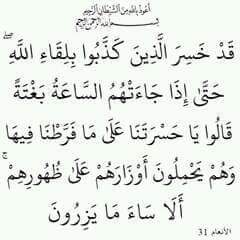 أعوذ بالله من الشيطان الرجيم
بسم الله الرحمن الرحيم
قَدْ خَسِرَ الَّذِينَ كَذَّبُوا بِلِقَاءِ اللَّهِ ۖ
حَتَّىٰ إِذَا جَاءَتْهُمُ السَّاعَةُ بَغْتَةً
قَالُوا يَا حَسْرَتَنَا عَلَىٰ مَا فَرَّطْنَا فِيهَا
وَهُمْ يَحْمِلُونَ أَوْزَارَهُمْ عَلَىٰ ظُهُورِهِمْ ۚ
أَلَا سَاءَ مَا يَزِرُونَ
الأنعام 31